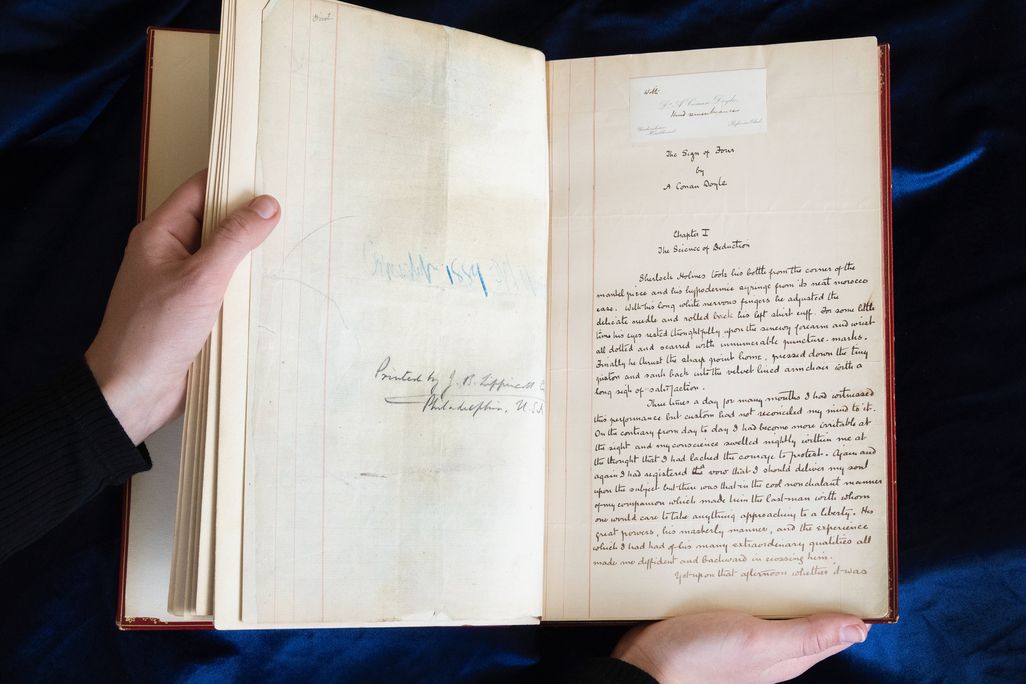 First
Printed by J. B. Lippincott
Philadelphia, U.S.A
With
Dr A Conan Doyle
kind remembrances
Reform Club.
The Sign of Four
by
A Conan Doyle
Chapter I
The Science of Deduction
Sherlock Holmes took his bottle from the corner of the
mantel piece and his hypodermic syringe from its neat morocco
case. With his long white nervous fingers he adjusted the
delicate needle and rolled back his left shirt cuff. For some little
time his eyes rested thoughtfully upon the sinewy forearm and wrist
all dotted and scarred with innumerable puncture-marks.
Finally he thrust the sharp point home, pressed down the tiny
piston and sank back into the velvet lined armchair with a
long sigh of satisfaction.
Three times a day for many months I had witnessed
this performance but custom had not reconciled my mind to it.
On the contrary from day to day I had become more irritable at
the sight and my conscience swelled nightly within me at
the thought that I had lacked the courage to protest. Again and
again I had registered the vow that I should deliver my soul
upon the subject but there was that in the cool nonchalant manner
of my companion which made him the last man with whom
one would care to take anything approaching to a liberty. His
great powers, his masterly manner, and the experience
which I had had of his many extraordinary qualities all
made me diffident and backward in crossing him.
Yet upon that afternoon whether it was